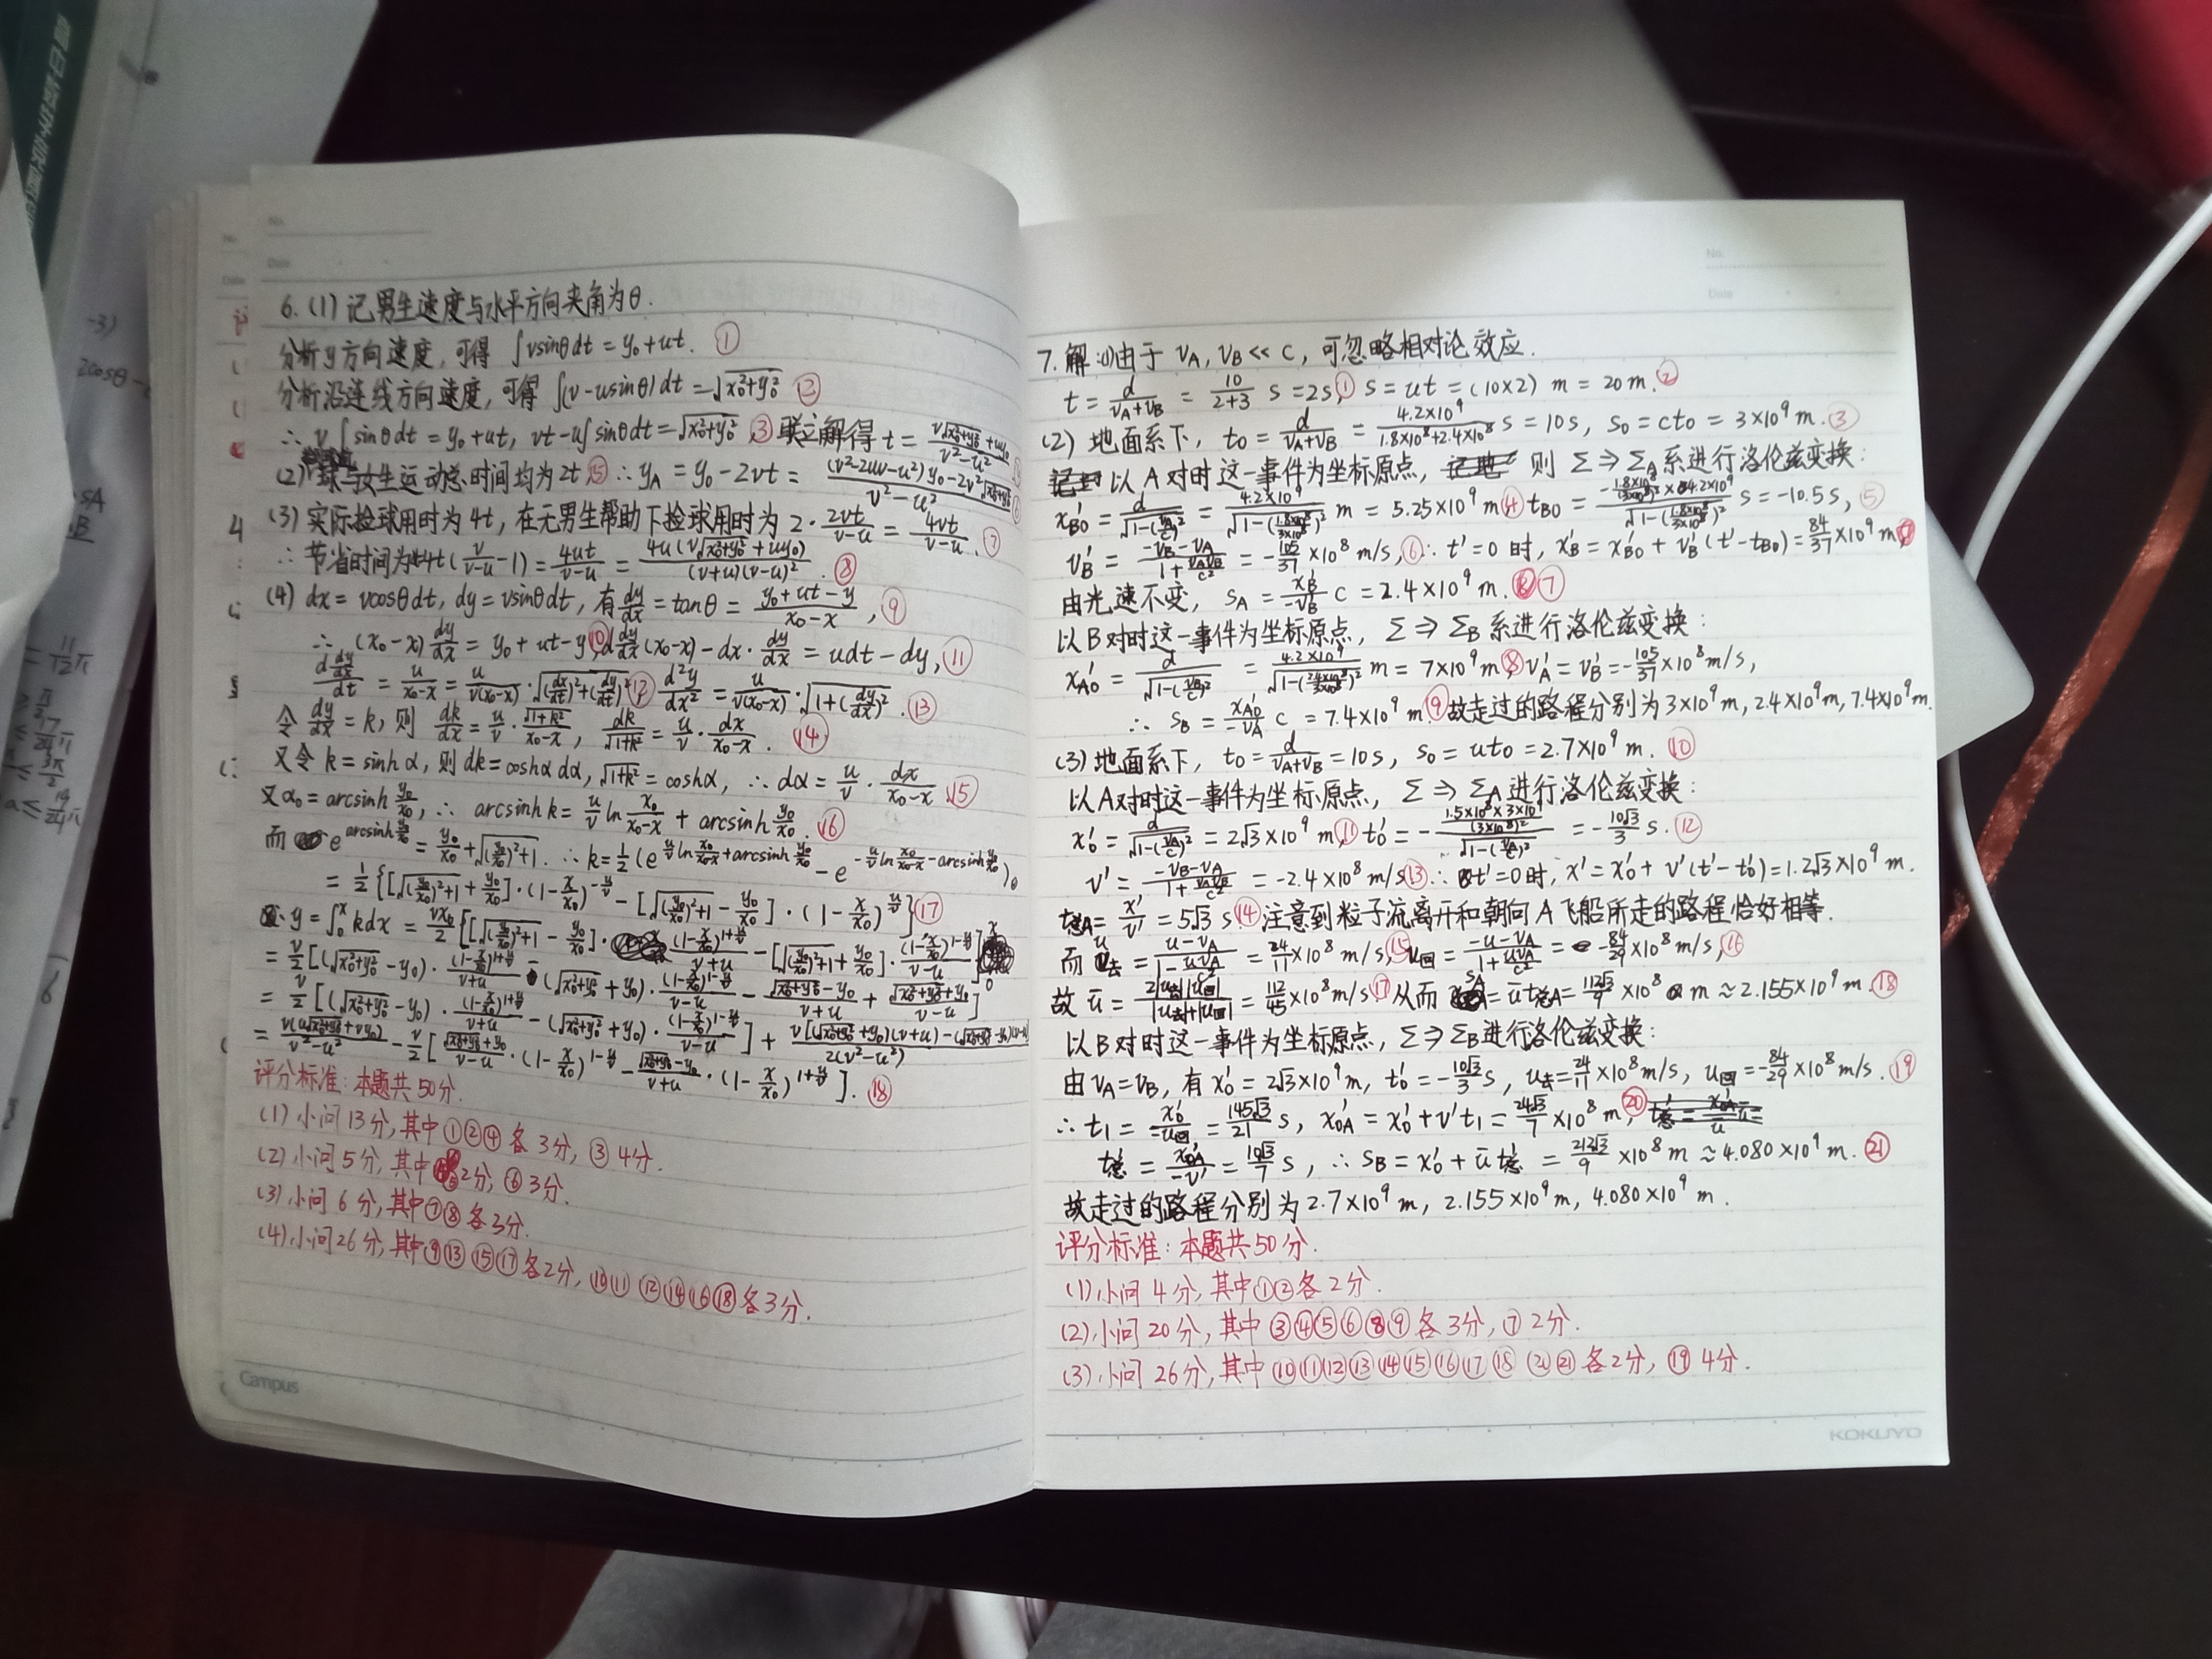 No.
Date
6. (1) 记男生速度与水平方向夹角为θ.
分析y方向速度, 可得 ∫vsinθdt = y₀+ut. ①
分析沿连线方向速度, 可得 ∫(v-usinθ)dt = √(x₀²+y₀²) ②
∴ v∫sinθdt = y₀+ut, vt-u∫sinθdt = √(x₀²+y₀²), ③ 联立解得 t = (v√(x₀²+y₀²)+uy₀)/(v²-u²)
(2) 球与女生运动总时间均为2t ⑤ ∴ y_A = y₀-2vt = ((v²-2uv-u²)y₀-2v²√(x₀²+y₀²))/(v²-u²) ⑥
(3) 实际捡球用时为4t, 在无男生帮助下捡球用时为 2·2vt/(v-u) = 4vt/(v-u). ⑦
∴ 节省时间为4t(v/(v-u)-1) = 4ut/(v-u) = 4u(v√(x₀²+y₀²)+uy₀)/((v+u)(v-u)²). ⑧
(4) dx = vcosθdt, dy = vsinθdt, 有 dy/dx = tanθ = (y₀+ut-y)/(x₀-x), ⑨
∴ (x₀-x)dy/dx = y₀+ut-y, ⑩ d(dy/dx)(x₀-x)-dx·dy/dx = udt-dy, ⑪
d(dy/dx)/dt = u/(x₀-x) = u/(v(x₀-x))·√((dx/dt)²+(dy/dt)²) ⑫ d²y/dx² = u/(v(x₀-x))·√(1+(dy/dx)²). ⑬
令 dy/dx = k, 则 dk/dx = u/v·√(1+k²)/(x₀-x), dk/√(1+k²) = u/v·dx/(x₀-x). ⑭
又令 k = sinhα, 则dk = coshαdα, √(1+k²) = coshα, ∴ dα = u/v·dx/(x₀-x). ⑮
又α₀ = arcsinh y₀/x₀, ∴ arcsinh k = u/v ln x₀/(x₀-x) + arcsinh y₀/x₀. ⑯
而 e^(arcsinh y₀/x₀) = y₀/x₀+√((y₀/x₀)²+1). ∴ k = 1/2(e^(u/v ln x₀/(x₀-x)+arcsinh y₀/x₀) - e^(-u/v ln x₀/(x₀-x)-arcsinh y₀/x₀)).
= 1/2{[√((y₀/x₀)²+1)+y₀/x₀]·(1-x/x₀)^(-u/v) - [√((y₀/x₀)²+1)-y₀/x₀]·(1-x/x₀)^(u/v)} ⑰
∴ y = ∫₀ˣ kdx = vx₀/2{[√((y₀/x₀)²+1)-y₀/x₀]·(1-x/x₀)^(1+u/v)/(v+u) - [√((y₀/x₀)²+1)+y₀/x₀]·(1-x/x₀)^(1-u/v)/(v-u)}
= v/2[(√(x₀²+y₀²)-y₀)·(1-x/x₀)^(1+u/v)/(v+u) - (√(x₀²+y₀²)+y₀)·(1-x/x₀)^(1-u/v)/(v-u) - (√(x₀²+y₀²)-y₀)/(v+u) + (√(x₀²+y₀²)+y₀)/(v-u)]
= v/2[(√(x₀²+y₀²)-y₀)·(1-x/x₀)^(1+u/v)/(v+u) - (√(x₀²+y₀²)+y₀)·(1-x/x₀)^(1-u/v)/(v-u)] + v[(√(x₀²+y₀²)+y₀)(v+u)-(√(x₀²+y₀²)-y₀)(v-u)]/(2(v²-u²))
= v(u√(x₀²+y₀²)+vy₀)/(v²-u²) - v/2[(√(x₀²+y₀²)+y₀)/(v-u)·(1-x/x₀)^(1-u/v) - (√(x₀²+y₀²)-y₀)/(v+u)·(1-x/x₀)^(1+u/v)]. ⑱
评分标准: 本题共50分.
(1) 小问13分, 其中①②④各3分, ③4分.
(2) 小问5分, 其中⑤2分, ⑥3分.
(3) 小问6分, 其中⑦⑧各3分.
(4) 小问26分, 其中⑨⑬⑮⑰各2分, ⑩⑪⑫⑭⑯⑱各3分.
Campus
No.
Date
7. 解: (1)由于 v_A, v_B ≪ c, 可忽略相对论效应.
t = d/(v_A+v_B) = 10/(2+3) s = 2s, ① s = ut = (10×2) m = 20m. ②
(2) 地面系下, t₀ = d/(v_A+v_B) = 4.2×10⁹/(1.8×10⁸+2.4×10⁸) s = 10s, s₀ = ct₀ = 3×10⁹m. ③
以A对时这一事件为坐标原点, 则 Σ⇒Σ_A系进行洛伦兹变换:
x'_B0 = d/√(1-(v_A/c)²) = 4.2×10⁹/√(1-(1.8×10⁸/3×10⁸)²) m = 5.25×10⁹m ④ t_B0 = -(1.8×10⁸/(3×10⁸)²×4.2×10⁹)/√(1-(1.8×10⁸/3×10⁸)²) s = -10.5s, ⑤
v'_B = (-v_B-v_A)/(1+v_Av_B/c²) = -105/37×10⁸ m/s, ⑥ ∴ t'=0时, x'_B = x'_B0+v'_B(t'-t_B0) = 84/37×10⁹m,
由光速不变, s_A = x'_B/-v'_B c = 2.4×10⁹m. ⑦
以B对时这一事件为坐标原点, Σ⇒Σ_B系进行洛伦兹变换:
x'_A0 = d/√(1-(v_B/c)²) = 4.2×10⁹/√(1-(2.4×10⁸/3×10⁸)²) m = 7×10⁹m ⑧ v'_A = v'_B = -105/37×10⁸m/s,
∴ s_B = x'_A0/-v'_A c = 7.4×10⁹m. ⑨ 故走过的路程分别为3×10⁹m, 2.4×10⁹m, 7.4×10⁹m.
(3) 地面系下, t₀ = d/(v_A+v_B) = 10s, s₀ = ut₀ = 2.7×10⁹m. ⑩
以A对时这一事件为坐标原点, Σ⇒Σ_A进行洛伦兹变换:
x'₀ = d/√(1-(v_A/c)²) = 2√3×10⁹m, ⑪ t'₀ = -(1.5×10⁸×3×10⁹/(3×10⁸)²)/√(1-(v_A/c)²) = -10√3/3 s. ⑫
v' = (-v_B-v_A)/(1+v_Av_B/c²) = -2.4×10⁸m/s ⑬ ∴ t'=0时, x' = x'₀+v'(t'-t'₀) = 1.2√3×10⁹m.
t总A = x'/v' = 5√3 s. ⑭ 注意到粒子流离开和朝向A飞船所走的路程恰好相等.
而 u去 = (u-v_A)/(1-uv_A/c²) = 24/11×10⁸m/s, ⑮ u回 = (-u-v_A)/(1+uv_A/c²) = -84/29×10⁸m/s, ⑯
故 ū = 2|u去||u回|/(|u去|+|u回|) = 112/45×10⁸m/s ⑰ 从而 s_A = ūt总A = 112√3/9×10⁸ m ≈ 2.155×10⁹m. ⑱
以B对时这一事件为坐标原点, Σ⇒Σ_B进行洛伦兹变换:
由v_A=v_B, 有x'₀ = 2√3×10⁹m, t'₀ = -10√3/3 s, u去 = 24/11×10⁸m/s, u回 = -84/29×10⁸m/s. ⑲
∴ t₁ = x'₀/-u回 = 145√3/21 s, x'₀A = x'₀+v't₁ = 24√3/7×10⁸m, ⑳
t'总 = x'₀A/-v' = 10√3/7 s, ∴ s_B = x'₀+ūt'总 = 212√3/9×10⁸m ≈ 4.080×10⁹m. ㉑
故走过的路程分别为2.7×10⁹m, 2.155×10⁹m, 4.080×10⁹m.
评分标准: 本题共50分.
(1) 小问4分, 其中①②各2分.
(2) 小问20分, 其中③④⑤⑥⑧⑨各3分, ⑦2分.
(3) 小问26分, 其中⑩⑪⑫⑬⑭⑮⑯⑰⑱⑳㉑各2分, ⑲4分.
KOKUYO